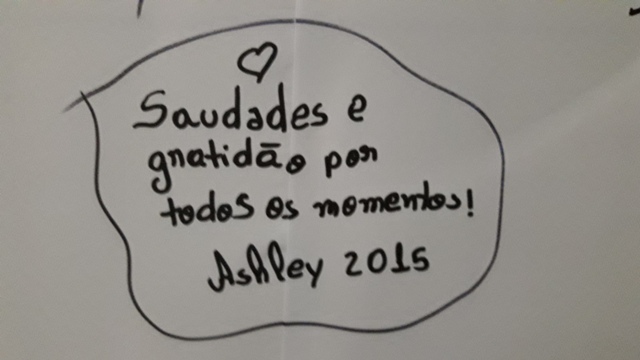 Saudades e
gratidão por
todos os momentos!
Ashley 2015